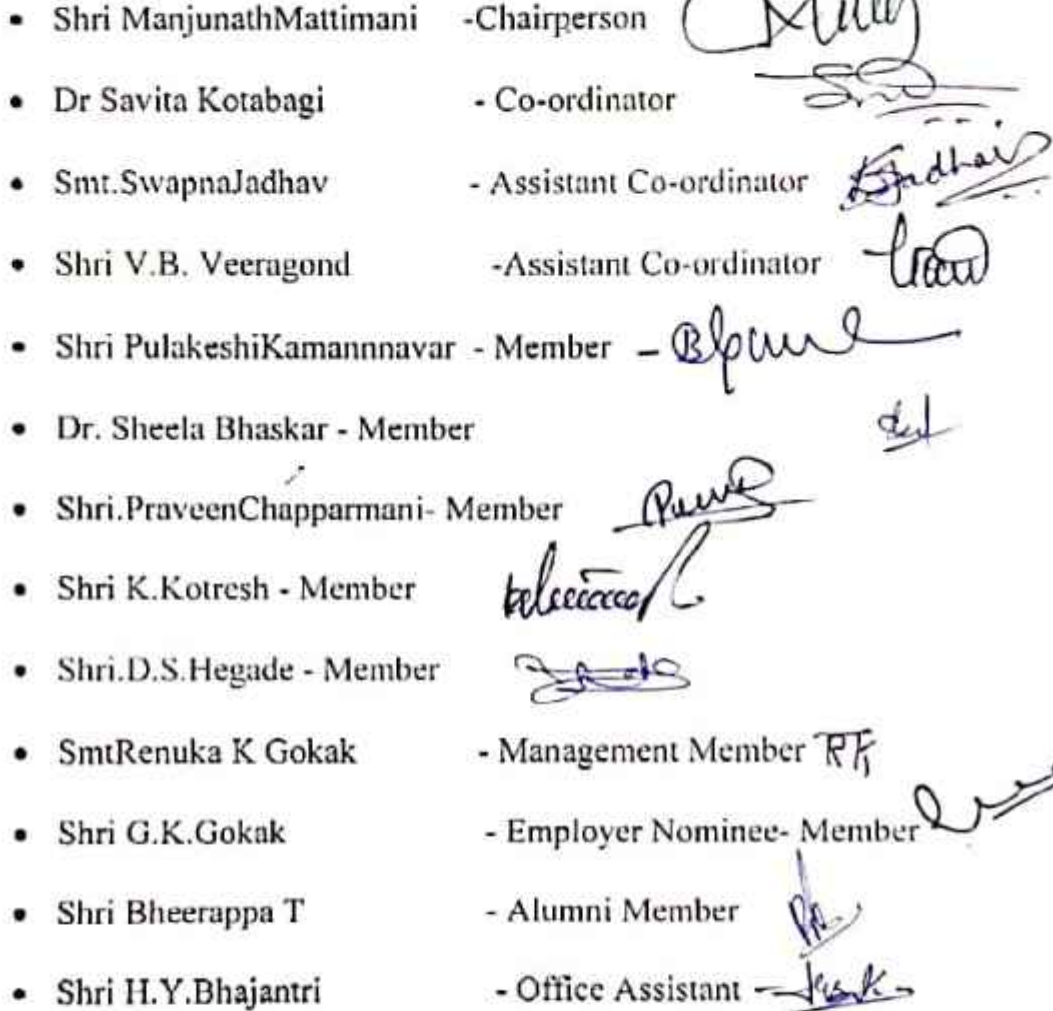 • Shri ManjunathMattimani -Chairperson
• Dr Savita Kotabagi - Co-ordinator
• Smt.SwapnaJadhav - Assistant Co-ordinator
• Shri V.B. Veeragond -Assistant Co-ordinator
• Shri PulakeshiKamannnavar - Member -
• Dr. Sheela Bhaskar - Member
• Shri.PraveenChapparmani- Member
• Shri K.Kotresh - Member
• Shri.D.S.Hegade - Member
• SmtRenuka K Gokak - Management Member
• Shri G.K.Gokak - Employer Nominee- Member
• Shri Bheerappa T - Alumni Member
• Shri H.Y.Bhajantri - Office Assistant